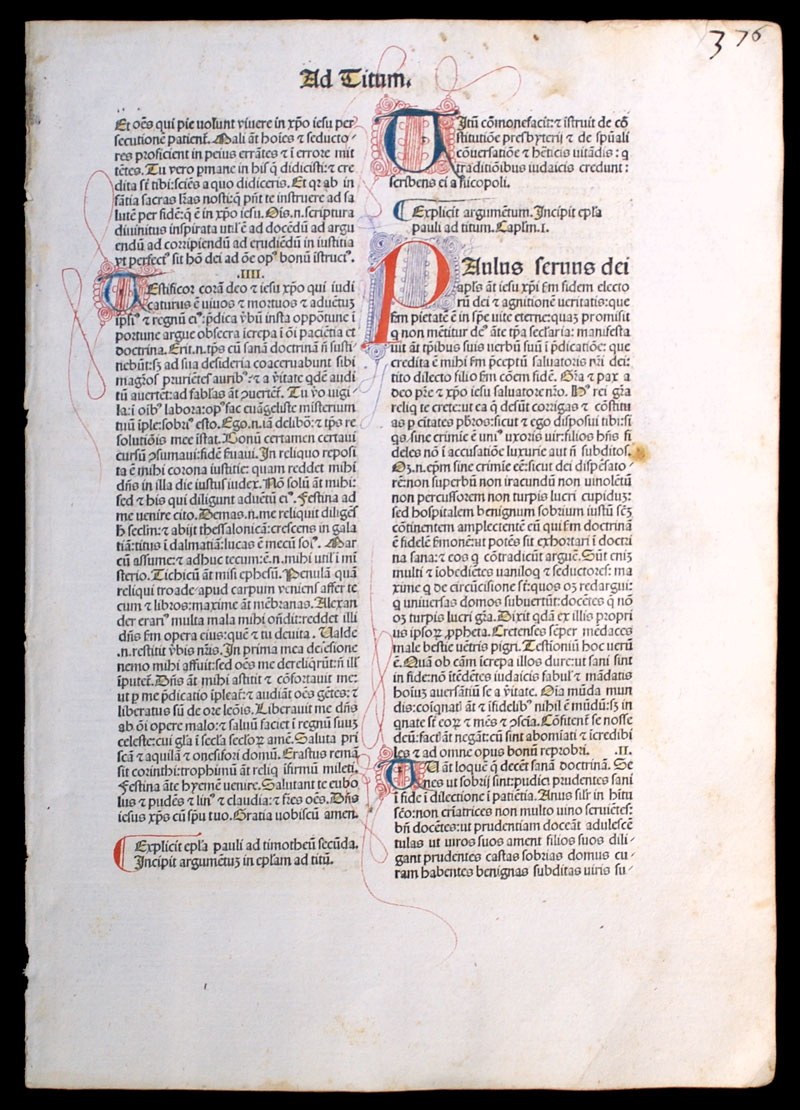 376
Ad Titum.
Et oēs qui pie volunt viuere in xp̄o iesu per
secutionē patient̄. Mali āt hoīes & seducto
res proficient in peius errātes & ī errore mit
tētes. Tu vero pmane in his q̄ didicisti: & cre
dita sūt tibi: sciēs a quo didiceris. Et qr ab in
fātia sacras lr̄as nosti: q̄ pn̄t te instruere ad sa
lutē per fidē: q̄ ē in xp̄o iesu. Oīs .n. scriptura
diuinitus inspirata util ē ad docēdū ad argu
endū ad corripiendū ad erudiēdū in iustitia
vt perfect⁹ sit hō dei ad ōe op⁹ bonū istruct⁹.
.IIII.
TEstificor corā deo & iesu xp̄o qui iudi
caturus ē uiuos & mortuos & aduētuȝ
ip̄i⁹ & regnū ei⁹: p̄dica v̄bū insta oppotūne ī
portune argue obsecra īcrepa ī ōi paciētia et
doctrina. Erit .n. tp̄s cū sanā doctrinā ñ susti
nebūt: sȝ ad sua desideria coaceruabunt sibi
magr̄os pruriētes aurib⁹: & a v̄itate qdē audi
tū auertēt: ad fablas āt ɔuertēt̄. Tu v̄o uigi
la: ī oib⁹ labora: op⁹ fac euāgeliste misterium
tuū īple: sobri⁹ esto. Ego .n. iā delibor: & tp̄s re
solutiōis mee īstat. Bonū certamen certaui
cursū ɔsumaui: fidē s̄uaui. In reliquo reposi
ta ē mihi corona iustitie: quam reddet mihi
dn̄s in illa die iustus iudex. Nō solū āt mihi:
sed & his qui diligunt aduētū ei⁹. Festina ad
me uenire cito. Demas .n. me reliquit diligēs
h̄ seclm̄: & abijt thessalonicā: crescens in gala
tiā: titus ī dalmatiā: lucas ē mecū sol⁹. Mar
cū assume: & adhuc tecum: ē .n. mihi util ī mī
sterio. Tichicū āt misi ephesū. Penulā quā
reliqui troade apud carpum ueniens affer te
cum & libros: maxime āt mēbranas. Alexan
der erari⁹ multa mala mihi on̄dit: reddet illi
dn̄s s̄m opera eius: quē & tu deuita. Ualde
.n. restitit v̄bis nr̄is. In prima mea defēsione
nemo mihi affuit: sed oēs me dereliqr̄ūt: ñ ill̄
īputet̄. Dn̄s āt mihi astitit & cōfortauit me:
ut p me p̄dicatio īpleat̄: & audiāt oēs gētes: &
liberatus sū de ore leōis. Liberauit me dn̄s
ab ōi opere malo: & saluū faciet ī regnū suuȝ
celeste: cui gl̄a ī secla secloꝝ amē. Saluta pri
scā & aquilā & onesifori domū. Erastus remā
sit corinthi: trophimū āt reliq̄ īfirmū mileti.
Festina āte hyemē uenire. Salutant te eubo
lus & pudēs & lin⁹ & claudia: & fr̄es oēs. Dn̄s
iesus xp̄s cū sp̄u tuo. Gratia uobiscū amen.
Explicit ep̄la pauli ad timotheū secūda.
Incipit argumētuȝ in ep̄lam ad titū.
TItū cōmonefacit: & īstruit de cō
stitutiōe presbyterij & de sp̄uali
cōuersatiōe & hēticis uitādis: q̄
traditiōibus iudaicis credunt:
scribens ei a nicopoli.
Explicit argumētum. Incipit ep̄la
pauli ad titum. Capl̄m .I.
PAulus seruus dei
apl̄s āt iesu xp̄i s̄m fidem electo
rū dei & agnitionē ueritatis: que
s̄m pietatē ē in spē uite eterne: quaȝ promisit
q̄ non mētitur de⁹ āte tp̄a sec̄laria: manifesta
uit āt tp̄ibus suis uerbū suū ī p̄dicatiōe: que
credita ē mihi s̄m p̄ceptū saluatoris nr̄i dei:
tito dilecto filio s̄m cōem fidē. Gr̄a & pax a
deo pr̄e & xp̄o iesu saluatore nr̄o. H⁹ rei gr̄a
reliq̄ te crete: ut ea q̄ desūt corrigas & cōstitu
as p citates pb̄ros: sicut & ego disposui tibi: si
qs̄ sine crimie ē uni⁹ uxoris uir: filios hn̄s fi
deles nō ī accusatiōe luxurie aut ñ subditos.
Oȝ .n. ep̄m sine crimīe eē: sicut dei dispēsato
rē: non superbū non iracundū non uinolētū
non percussorem non turpis lucri cupiduȝ:
sed hospitalem benignum sobrium iustū sc̄ȝ
cōtinentem amplectentē cū qui s̄m doctrinā
ē fidelē s̄monē: ut potēs sit exhortari ī doctri
na sana: & eos q̄ cōtradicūt arguē. Sūt eniȝ
multi & iobediētes uaniloq̄ & seductores: ma
xime q̄ de circūcisione sūt: quos oȝ redargui:
q̄ uniuersas domos subuertūt: docētes q̄ nō
oȝ turpis lucri gr̄a. Dixit qdā ex illis propri
us ipsoꝝ ppheta. Cretenses sēper mēdaces
male bestie uētris pigri. Testioniū hoc uerū
ē. Quā ob cām īcrepa illos dure: ut sani sint
in fide: nō ītēdētes iudaicis fabul̄ & mādatis
hoīuȝ auersātiū se a v̄itate. Oīa mūda mun
dis: coīqnatl̄ āt & ifidelib⁹ nihil ē mūdū: sȝ in
qnate sūt eoꝝ & mēs & ɔscīa. Cōfitent̄ se nosse
deū: fact̄ āt negāt: cū sint abomīati & īcredibi
les & ad omne opus bonū reprobi. .II.
TU āt loquē q̄ decēt sanā doctrinā. Se
nes ut sobrij sint: pudici prudentes sani
ī fide ī dilectione ī patiētia. Anus silr̄ in hītu
sc̄o: non criatrices non multo uino seruiētes:
bn̄ docētes: ut prudentiam doceāt adulescē
tulas ut uiros suos ament filios suos dili
gant prudentes castas sobrias domus cu
ram habentes benignas subditas uiris su